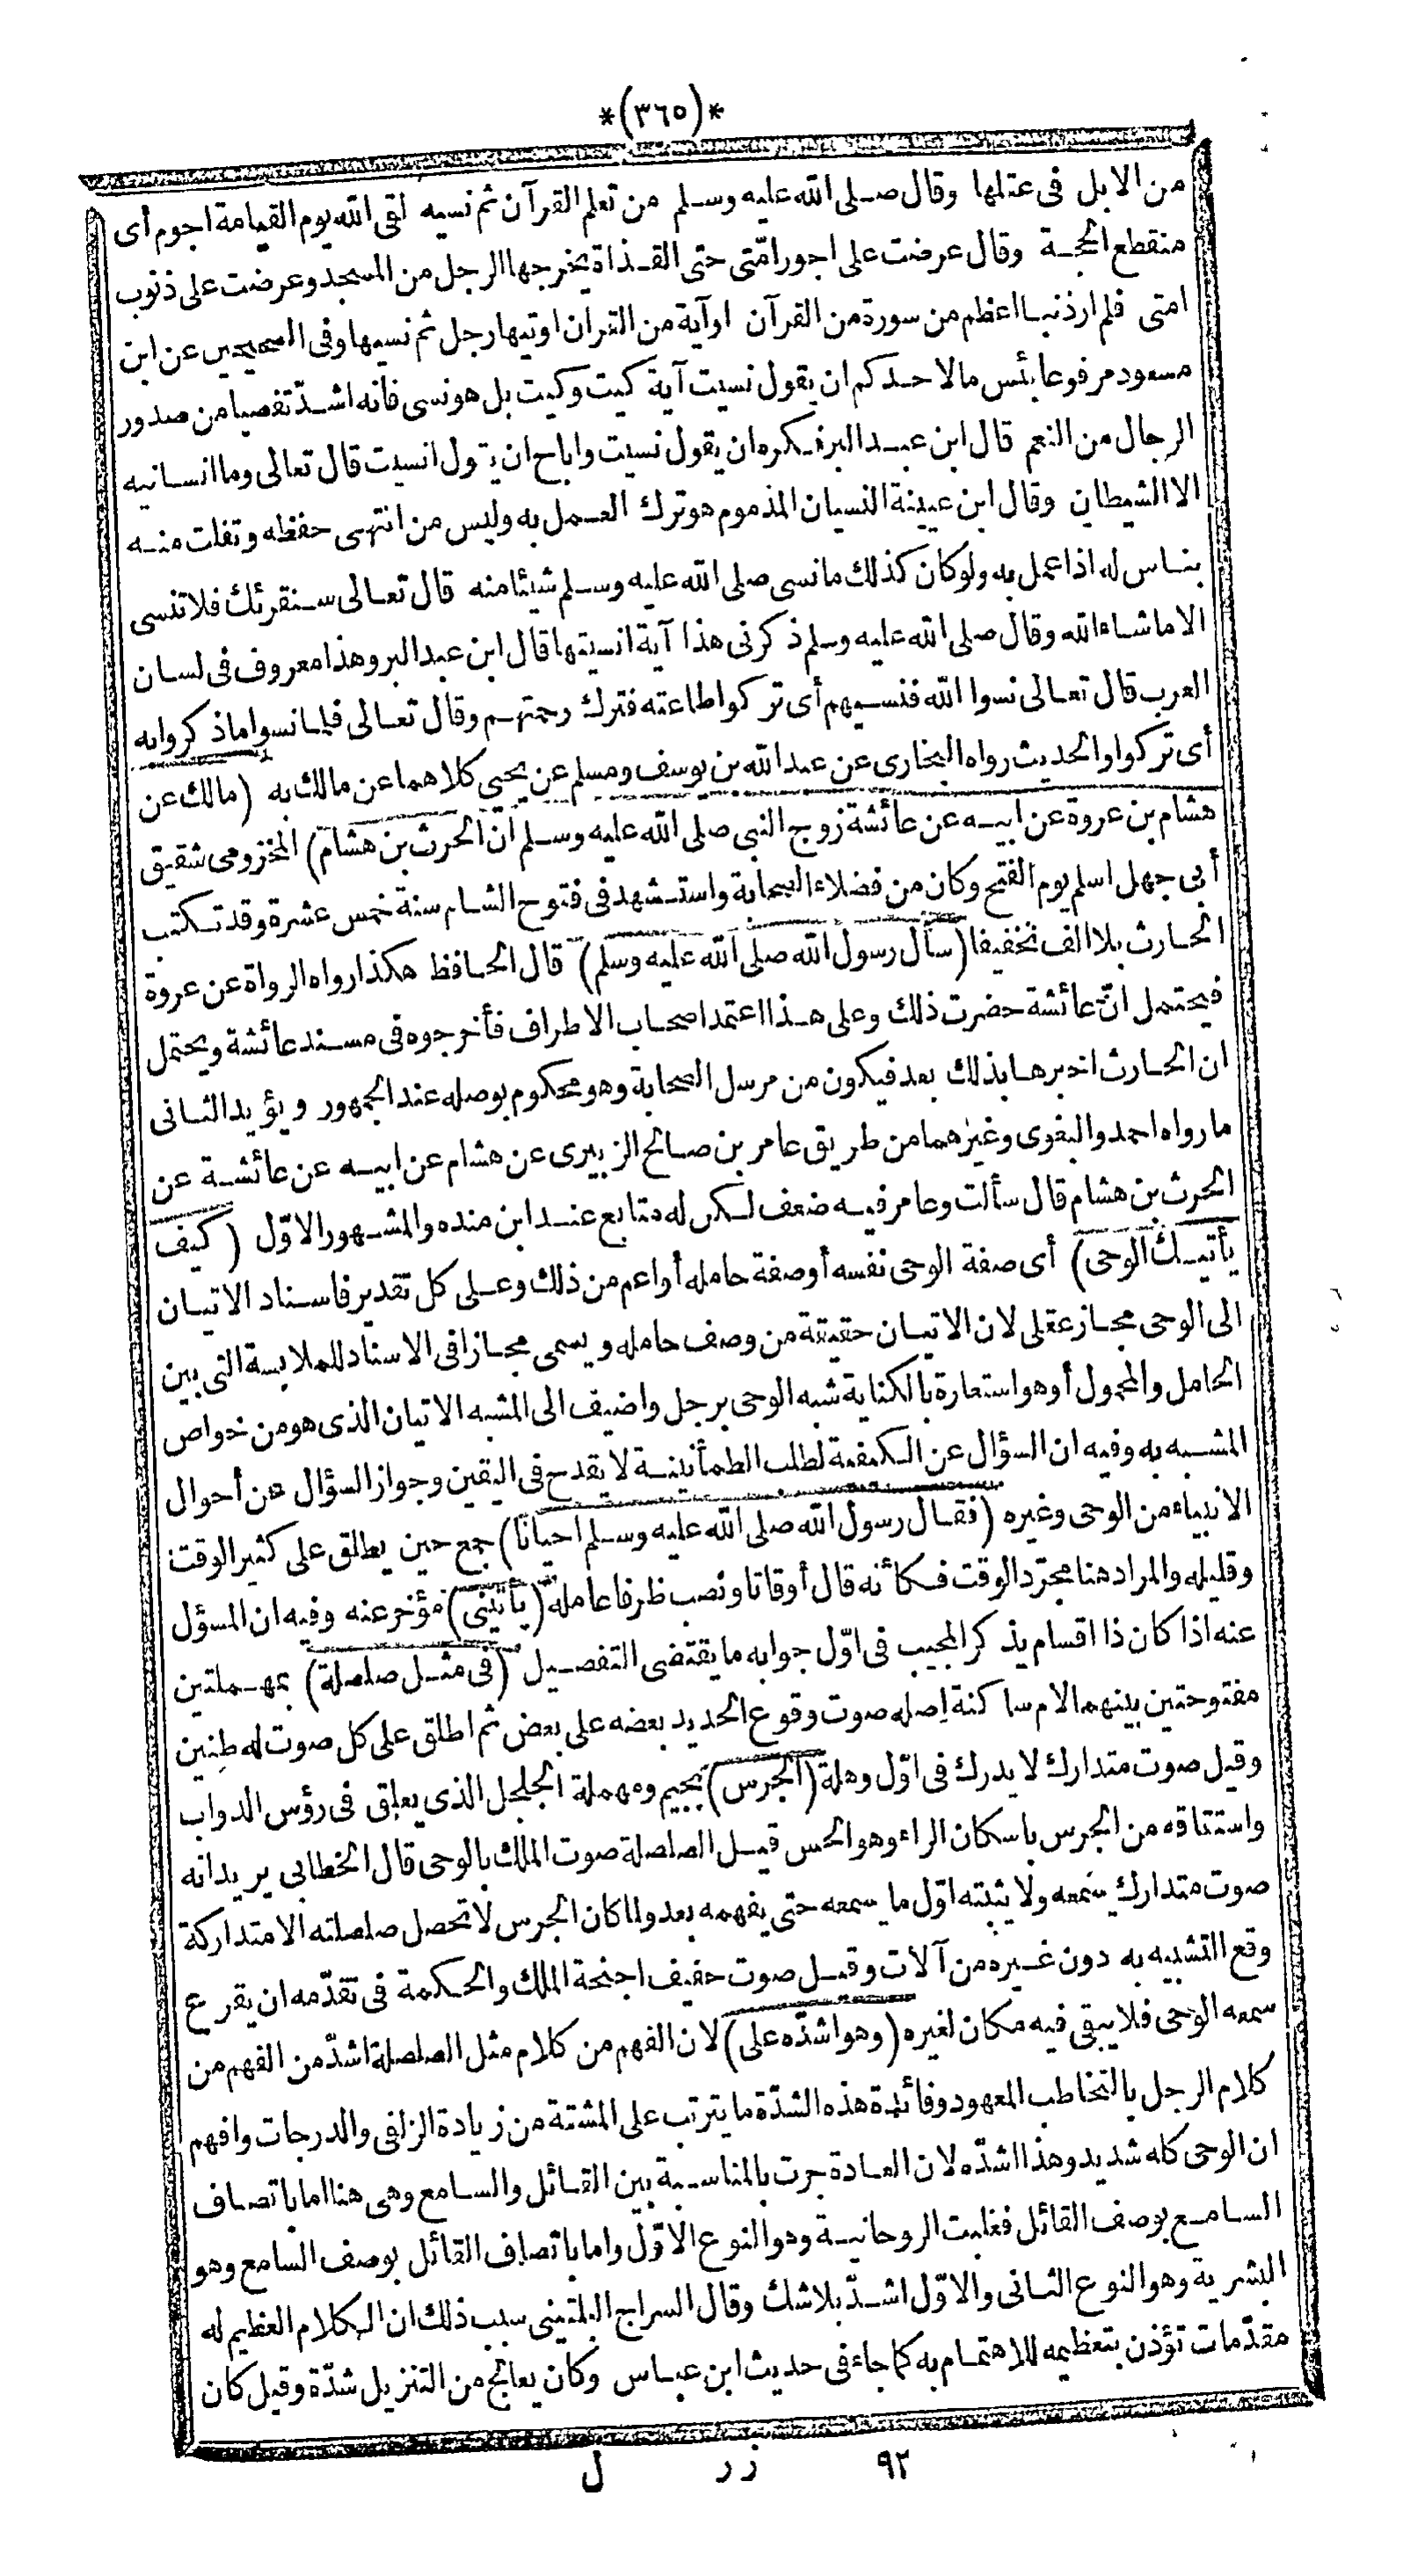 *(٣٦٥)*
من الابل فى عقلها وقال صلى الله عليه وسلم من تعلم القرآن ثم نسيه لقى الله يوم القيامة اجوم أى
منقطع الحجة وقال عرضت على اجور امّتى حتى القذاة يخرجها الرجل من المسجد وعرضت على ذنوب
امتى فلم ارذنبا اعظم من سورة من القرآن اوآية من القران اوتيها رجل ثم نسيها وفى الصحيحين عن ابن
مسعود مرفوعا بئس مالاحدكم ان يقول نسيت آية كيت وكيت بل هونسى فانه اشدّ تفصيا من صدور
الرجال من النعم قال ابن عبد البر فكره ان يقول نسيت واباح ان يقول انسيت قال تعالى وما انسانيه
الا الشيطان وقال ابن عيينة النسيان المذموم هوترك العمل به وليس من انتهى حفظه وتفلت منه
بناس له اذا عمل به ولوكان كذلك مانسى صلى الله عليه وسلم شيئا منه قال تعالى سنقرئك فلاتنسى
الاماشاء الله وقال صلى الله عليه وسلم ذكرنى هذا آية انسيتها قال ابن عبد البر وهذا معروف فى لسان
العرب قال تعالى نسوا الله فنسيهم أى تركوا طاعته فترك رحمتهم وقال تعالى فلما نسوا ماذكروابه
أى تركوا والحديث رواه البخارى عن عبد الله بن يوسف ومسلم عن يحيى كلاهما عن مالك به (مالك عن
هشام بن عروة عن ابيه عن عائشة زوج النبى صلى الله عليه وسلم انّ الحرث بن هشام) المخزومى شقيق
أبى جهل اسلم يوم الفتح وكان من فضلاء الصحابة واستشهد فى فتوح الشام سنة خمس عشرة وقد تكتب
الحارث بلا الف تخفيفا (سأل رسول الله صلى الله عليه وسلم) قال الحافظ هكذا رواه الرواة عن عروة
فيحتمل انّ عائشة حضرت ذلك وعلى هذا اعتمد اصحاب الاطراف فأخرجوه فى مسند عائشة ويحتمل
ان الحارث اخبرها بذلك بعد فيكون من مرسل الصحابة وهو محكوم بوصله عند الجمهور ويؤيد الثانى
مارواه احمد والبغوى وغيرهما من طريق عامر بن صالح الزبيرى عن هشام عن ابيه عن عائشة عن
الحرث بن هشام قال سألت وعامر فيه ضعف لكن له متابع عند ابن منده والمشهور الاوّل (كيف
يأتيك الوحى) أى صفة الوحى نفسه أوصفة حامله أواعم من ذلك وعلى كل تقدير فاسناد الاتيان
الى الوحى مجاز عقلى لان الاتيان حقيقة من وصف حامله ويسمى مجازا فى الاسناد للملابسة التى بين
الحامل والمحمول أوهو استعارة بالكناية شبه الوحى برجل واضيف الى المشبه الاتيان الذى هو من خواص
المشبه به وفيه ان السؤال عن الكيفية لطلب الطمأنينة لا يقدح فى اليقين وجواز السؤال عن أحوال
الانبياء من الوحى وغيره (فقال رسول الله صلى الله عليه وسلم احيانًا) جمع حين يطلق على كثير الوقت
وقليله والمراد هنا مجرّد الوقت فكأنه قال أوقاتا ونصب ظرفا عامله (يأتينى) مؤخر عنه وفيه ان المسؤل
عنه اذا كان ذا اقسام يذكر المجيب فى اوّل جوابه ما يقتضى التفصيل (فى مثل صلصلة) بمهملتين
مفتوحتين بينهما لام ساكنة اصله صوت وقوع الحديد بعضه على بعض ثم اطلق على كل صوت له طنين
وقيل صوت متدارك لا يدرك فى اوّل وهلة (الجرس) بجيم ومهملة الجلجل الذى يعلق فى رؤس الدواب
واشتقاقه من الجرس باسكان الراء وهو الحس قيل الصلصلة صوت الملك بالوحى قال الخطابى يريد انه
صوت متدارك سمعه ولا يثبته اوّل ما سمعه حتى يفهمه بعد ولما كان الجرس لا تحصل صلصلته الا متداركة
وقع التشبيه به دون غيره من آلات وقيل صوت حفيف اجنحة الملك والحكمة فى تقدّمه ان يقرع
سمعه الوحى فلا يبقى فيه مكان لغيره (وهو اشدّه على) لان الفهم من كلام مثل الصلصلة اشدّ من الفهم من
كلام الرجل بالتخاطب المعهود وفائدة هذه الشدّة ما يترتب على المشقة من زيادة الزلفى والدرجات وافهم
ان الوحى كله شديد وهذا اشدّه لان العادة جرت بالمناسبة بين القائل والسامع وهى هنا اما باتصاف
السامع بوصف القائل فغلبت الروحانية وهو النوع الاوّل واما باتصاف القائل بوصف السامع وهو
البشرية وهو النوع الثانى والاوّل اشدّ بلاشك وقال السراج البلقينى سبب ذلك ان الكلام العظيم له
مقدّمات تؤذن بتعظيمه للاهتمام به كما جاء فى حديث ابن عباس وكان يعالج من التنزيل شدّة وقيل كان
٩٢ زر ل